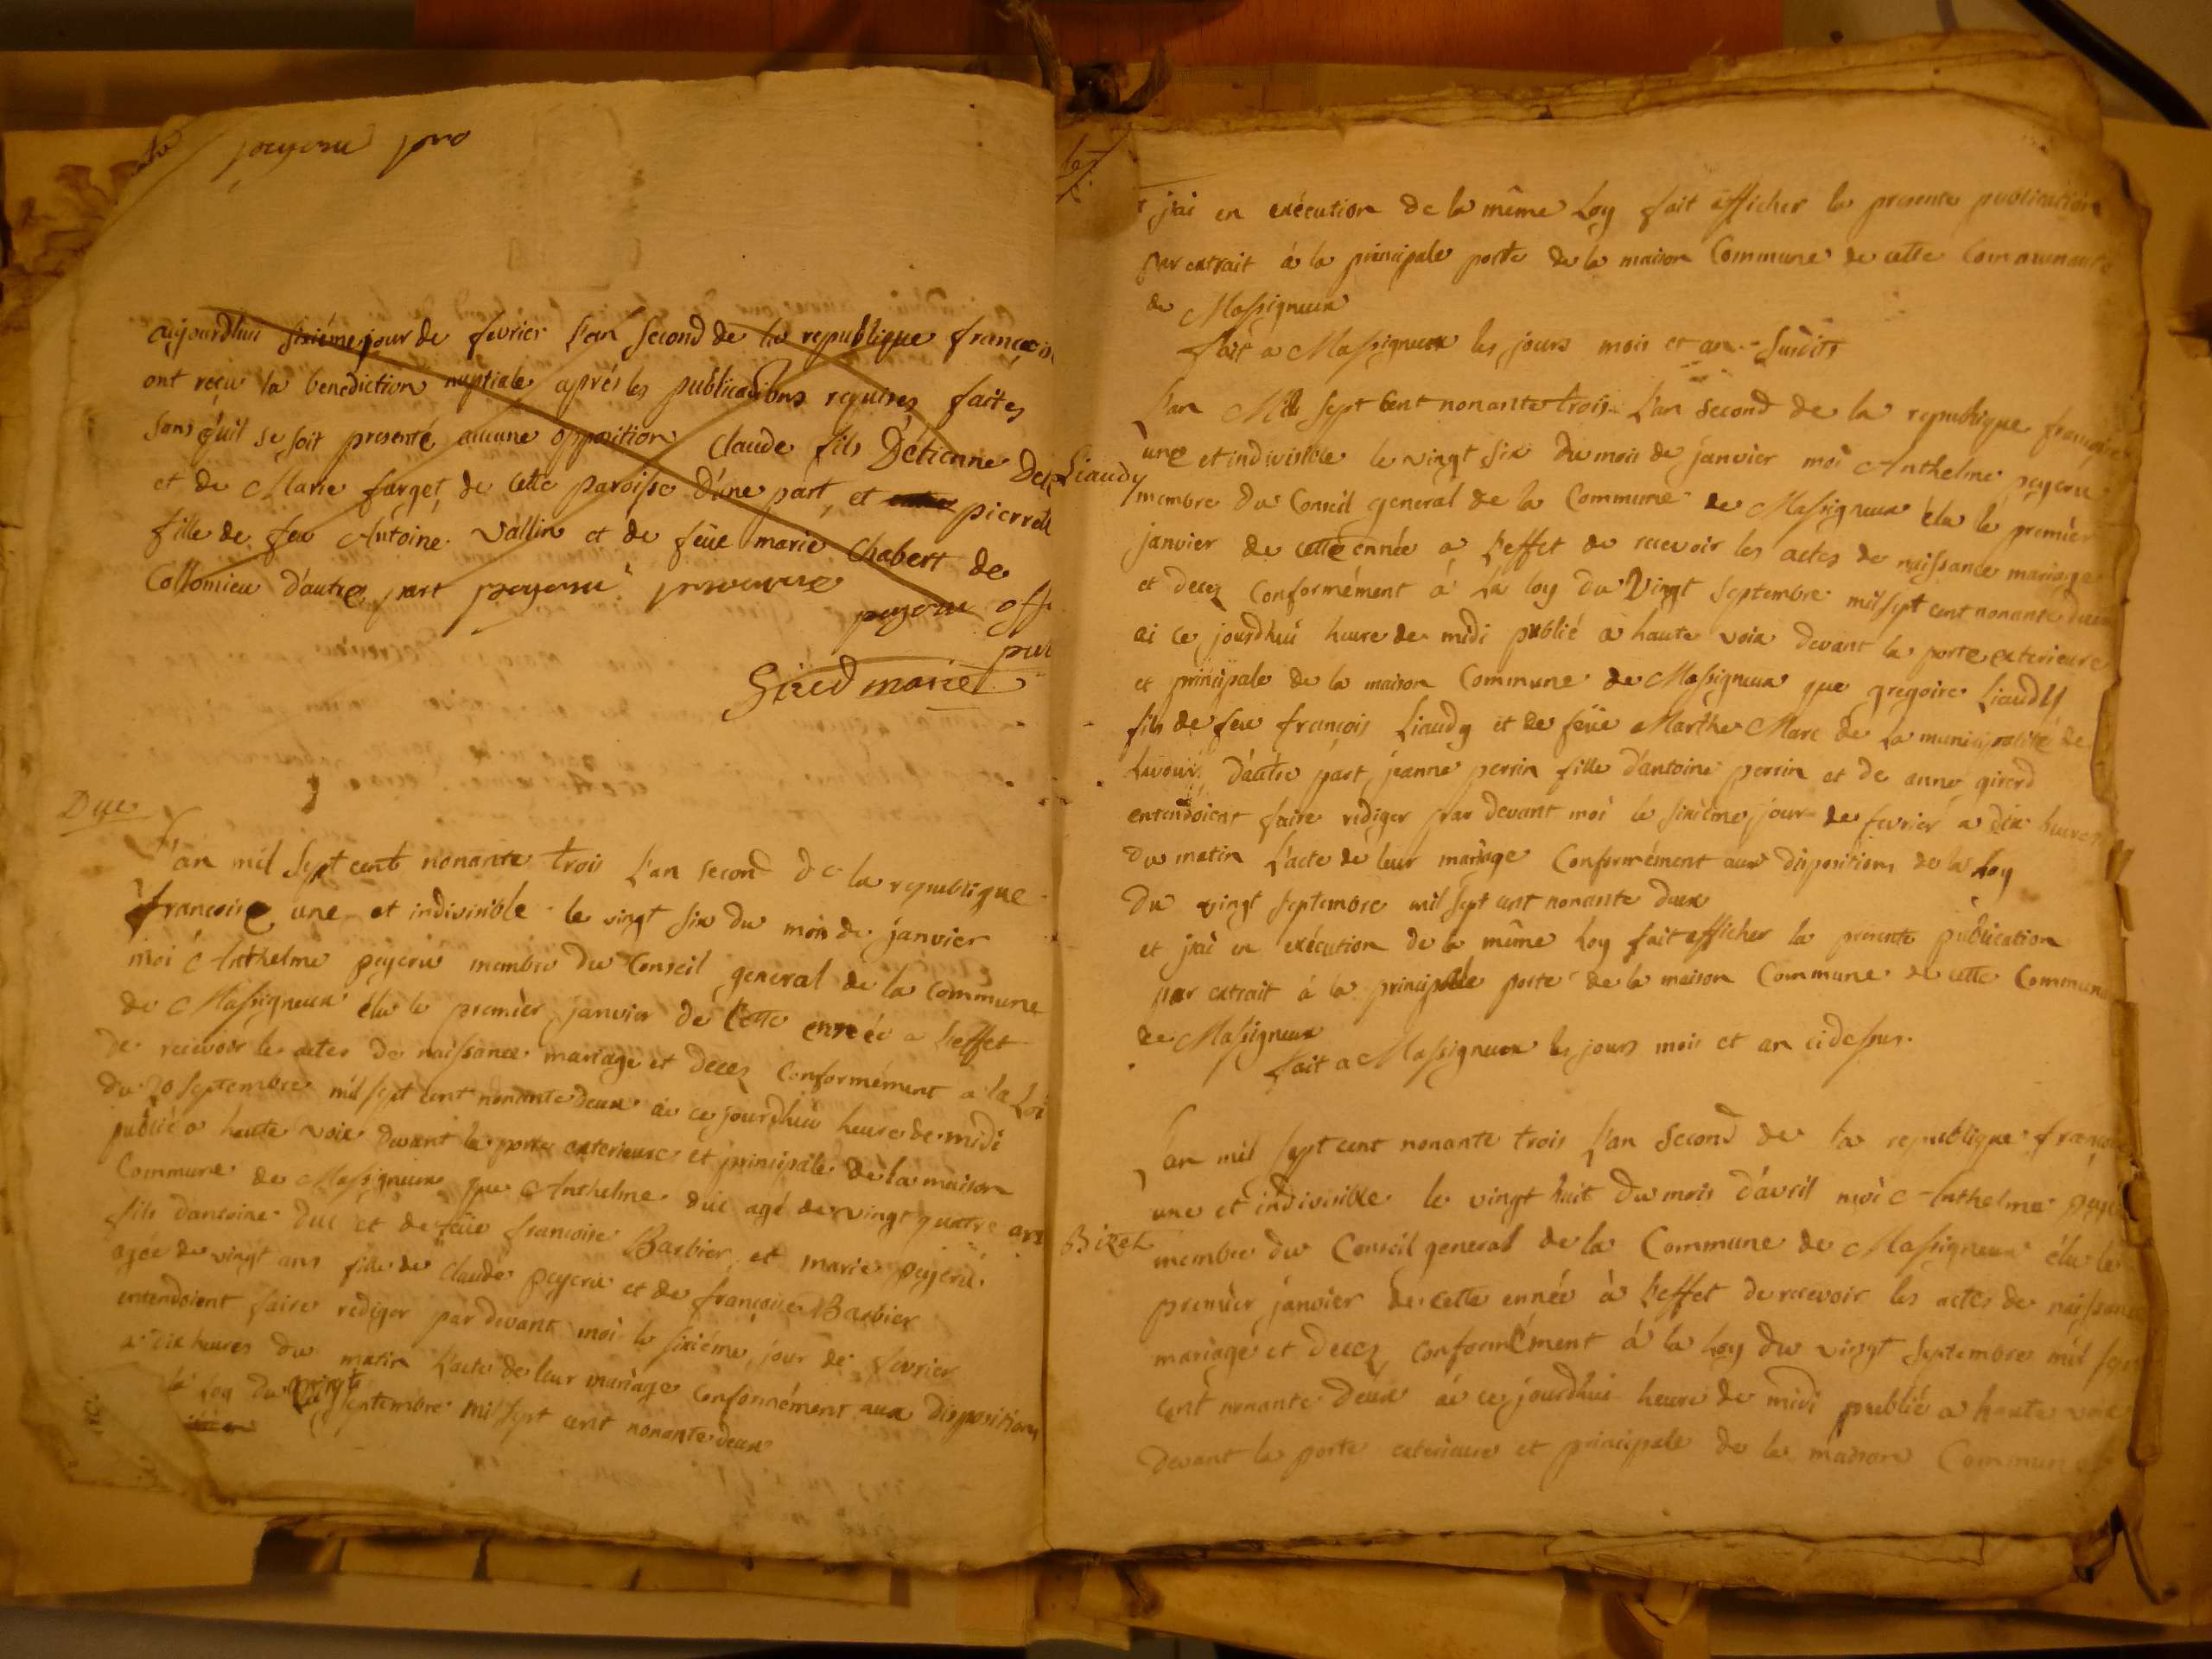 peyeru pro
aujourdhui sixiéme jour de fevrier l'an second de la republique françois
ont reçu la benediction nuptiale aprés les publications requises faites
sans qu'il se soit presenté aucune opposition claude fils D'étienne
et de Marie farget de cette paroisse d'une part, et pierrette
fille de feu Antoine vallin et de feüe marie Chabert de
Collomieu d'autre part peyeru
peyeru off
pub
Gired mariet
Duc
L'an mil sept cent nonante trois L'an second de la republique
francoise une et indivisible le vingt six du mois de janvier
moi Anthelme peyeru membre du Conseil general de la Commune
de Massigneux élu le premièr janvier de Cette ennéé a l'effet
de recevoir les actes de naissance mariage et decez Conformément a la Loi
du 20 septembre mil sept cent nonante deux ai ce jourdhui heure de midi
publié a haute voix devant la porte exterieure et principale de la maison
Commune de Massigneux que Anthelme duc agé de vingt quatre ans
fils d'antoine duc et de feüe francoise Barbier, et marie peyeru
agée de vingt ans fille de claude peyeru et de françoise Barbier
entendoient faire rediger par devant moi le sixiéme jour de fevrier
a dix heures du matin L'acte de leur mariage Conformément aux dispositions
de la Loy du vingt septembre mil sept cent nonante deux
et j'ai en exécution de la même Loy fait afficher la presente publication
par extrait á la principale porte de la maison Commune de cette Communauté
de Massigneux
fait a Massigneux les jours mois et an susdits
Liaudy
L'an Mill sept Cent nonante trois L'an second de la republique françoise
une et indivisible le vingt six du mois de janvier moi Anthelme peyeru
membre du Conseil general de la Commune de Massigneux élu le premièr
janvier de cette ennée a l'effet de recevoir les actes de naissance mariage
et decez Conformément á La loy du Vingt septembre mil sept cent nonante deux
ai ce jourdhui heure de midi publié a haute voix devant la porte exterieure
et principale de la maison Commune de Massigneux que gregoire Liaudy
fils de feu françois Liaudy et de feüe Marthe Marc de la municipalité de
d'autre part jeanne perrin fille d'antoine perrin et de anne girerd
entendoient faire rediger par devant moi le sixiéme jour de fevrier a dix heures
du matin L'acte de leur mariage Conformément aux dispositions de la Loy
du vingt septembre mil sept cent nonante deux
et j'ai en exécution de la même Loy fait afficher la presente publication
par extrait á la principale porte de la maison Commune de cette Commune
de Massigneux
fait a Massigneux les jours mois et an cidessus.
Bizet
L'an mil sept cent nonante trois L'an second de la republique françoise
une et indivisible le vingt huit du mois d'avril moi Anthelme peyeru
membre du Conseil general de la Commune de Massigneux élu le
premièr janvier de cette ennée à l'effet de recevoir les actes de naissance
mariage et decez conformément á la Loy du vingt septembre mil sept
cent nonante deux ai ce jourdhui heure de midi publié a haute voix
devant la porte exterieure et principale de la maison Commune